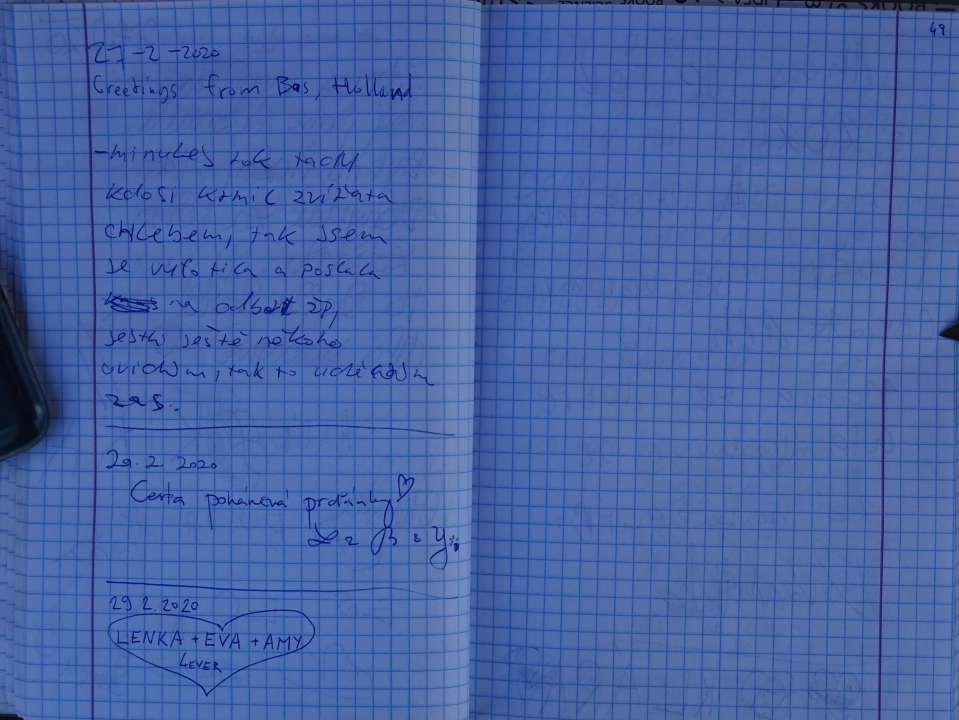 49
27-2-2020
Greetings from Bas, Holland
-minulej rok tady
kdosi krmil zvířata
chlebem, tak jsem
se vytotika a poslala
na odbor žp,
jestli ještě někoho
uvidím, tak to udělám
zas.
29.2 2020
Cesta poháněná prdíánky ♡
29.2.2020
LENKA + EVA + AMY
4EVER